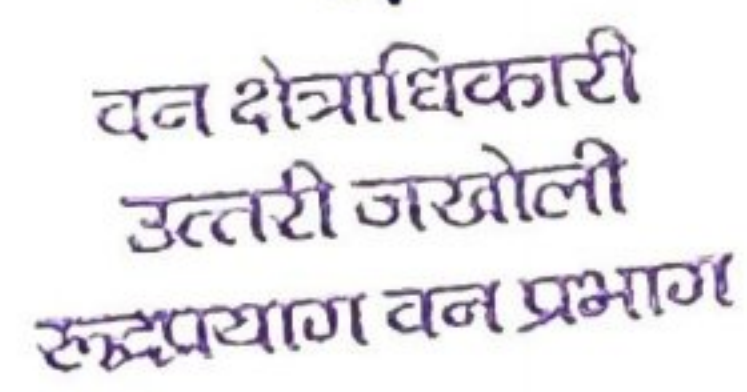 वन क्षेत्राधिकारी
उत्तरी जखोली
रूद्रप्रयाग वन प्रभाग